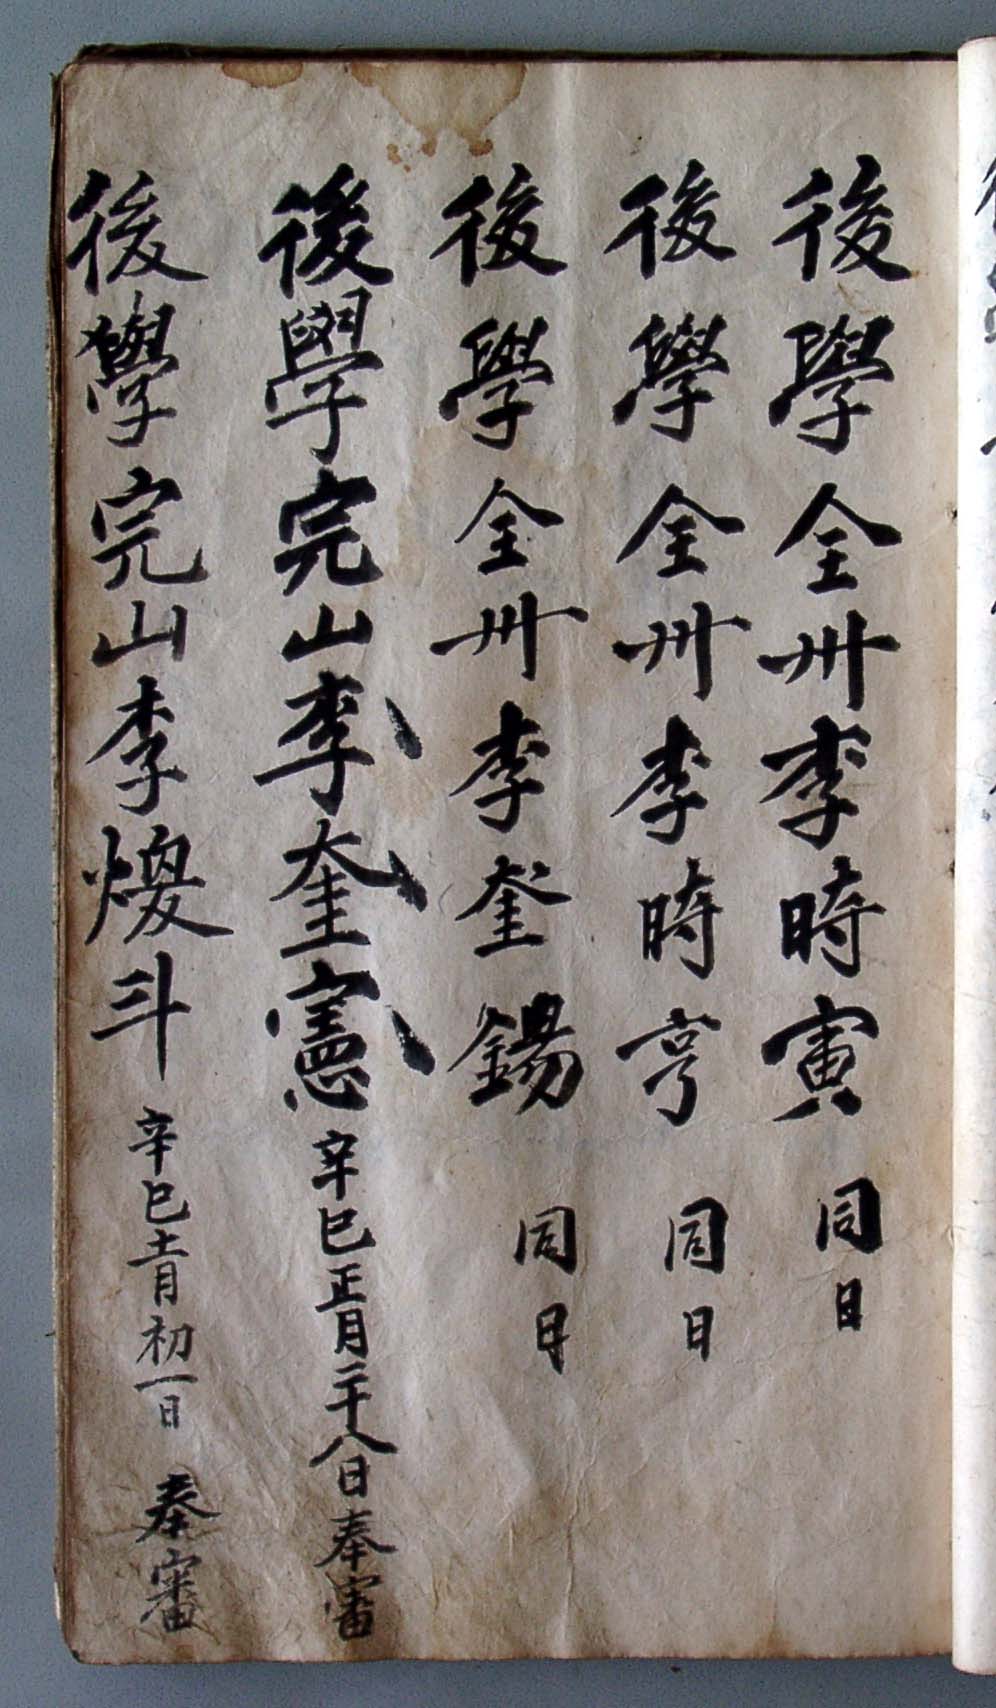 後學全州李時寅 同日
後學全州李時亨 同日
後學全州李奎錫 同日
後學完山李奎憲 辛巳正月二十八日奉審
後學完山李斗 辛巳十一月初一日 奉審